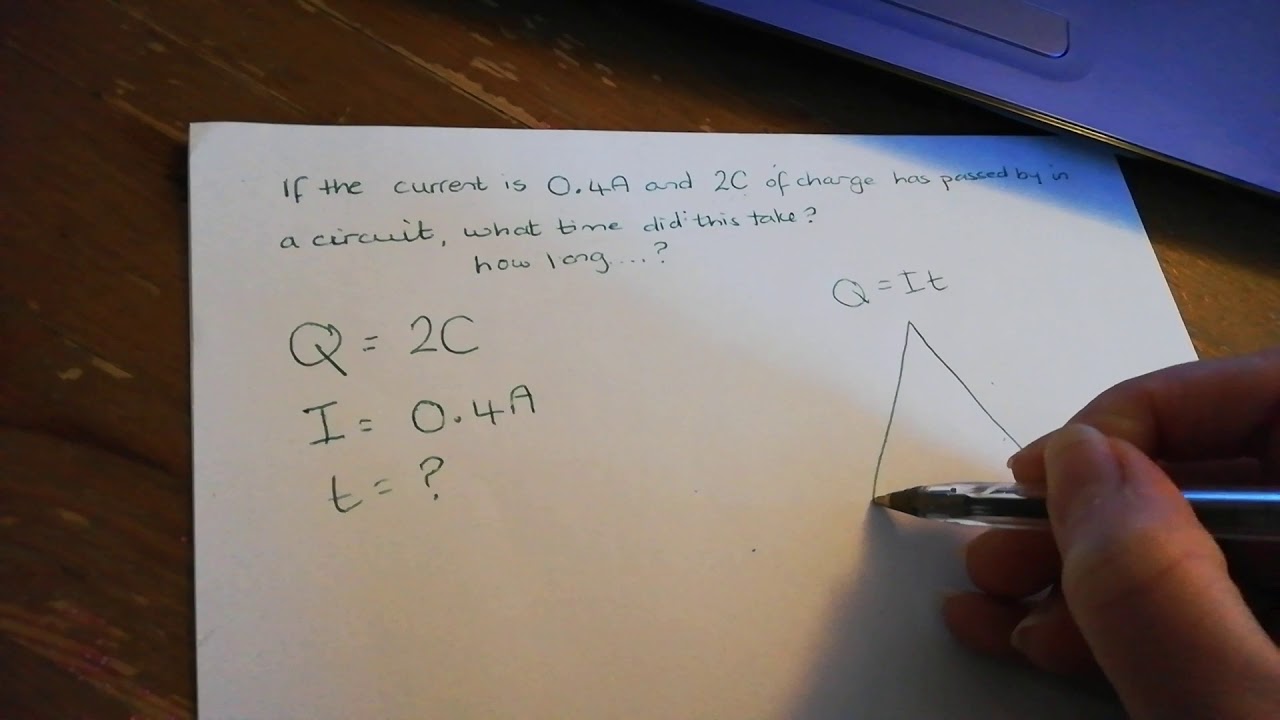 If the current is 0.4A and 2C of charge has passed by in
a circuit, what time did this take?
how long....?
Q = It
Q = 2C
I = 0.4A
t = ?